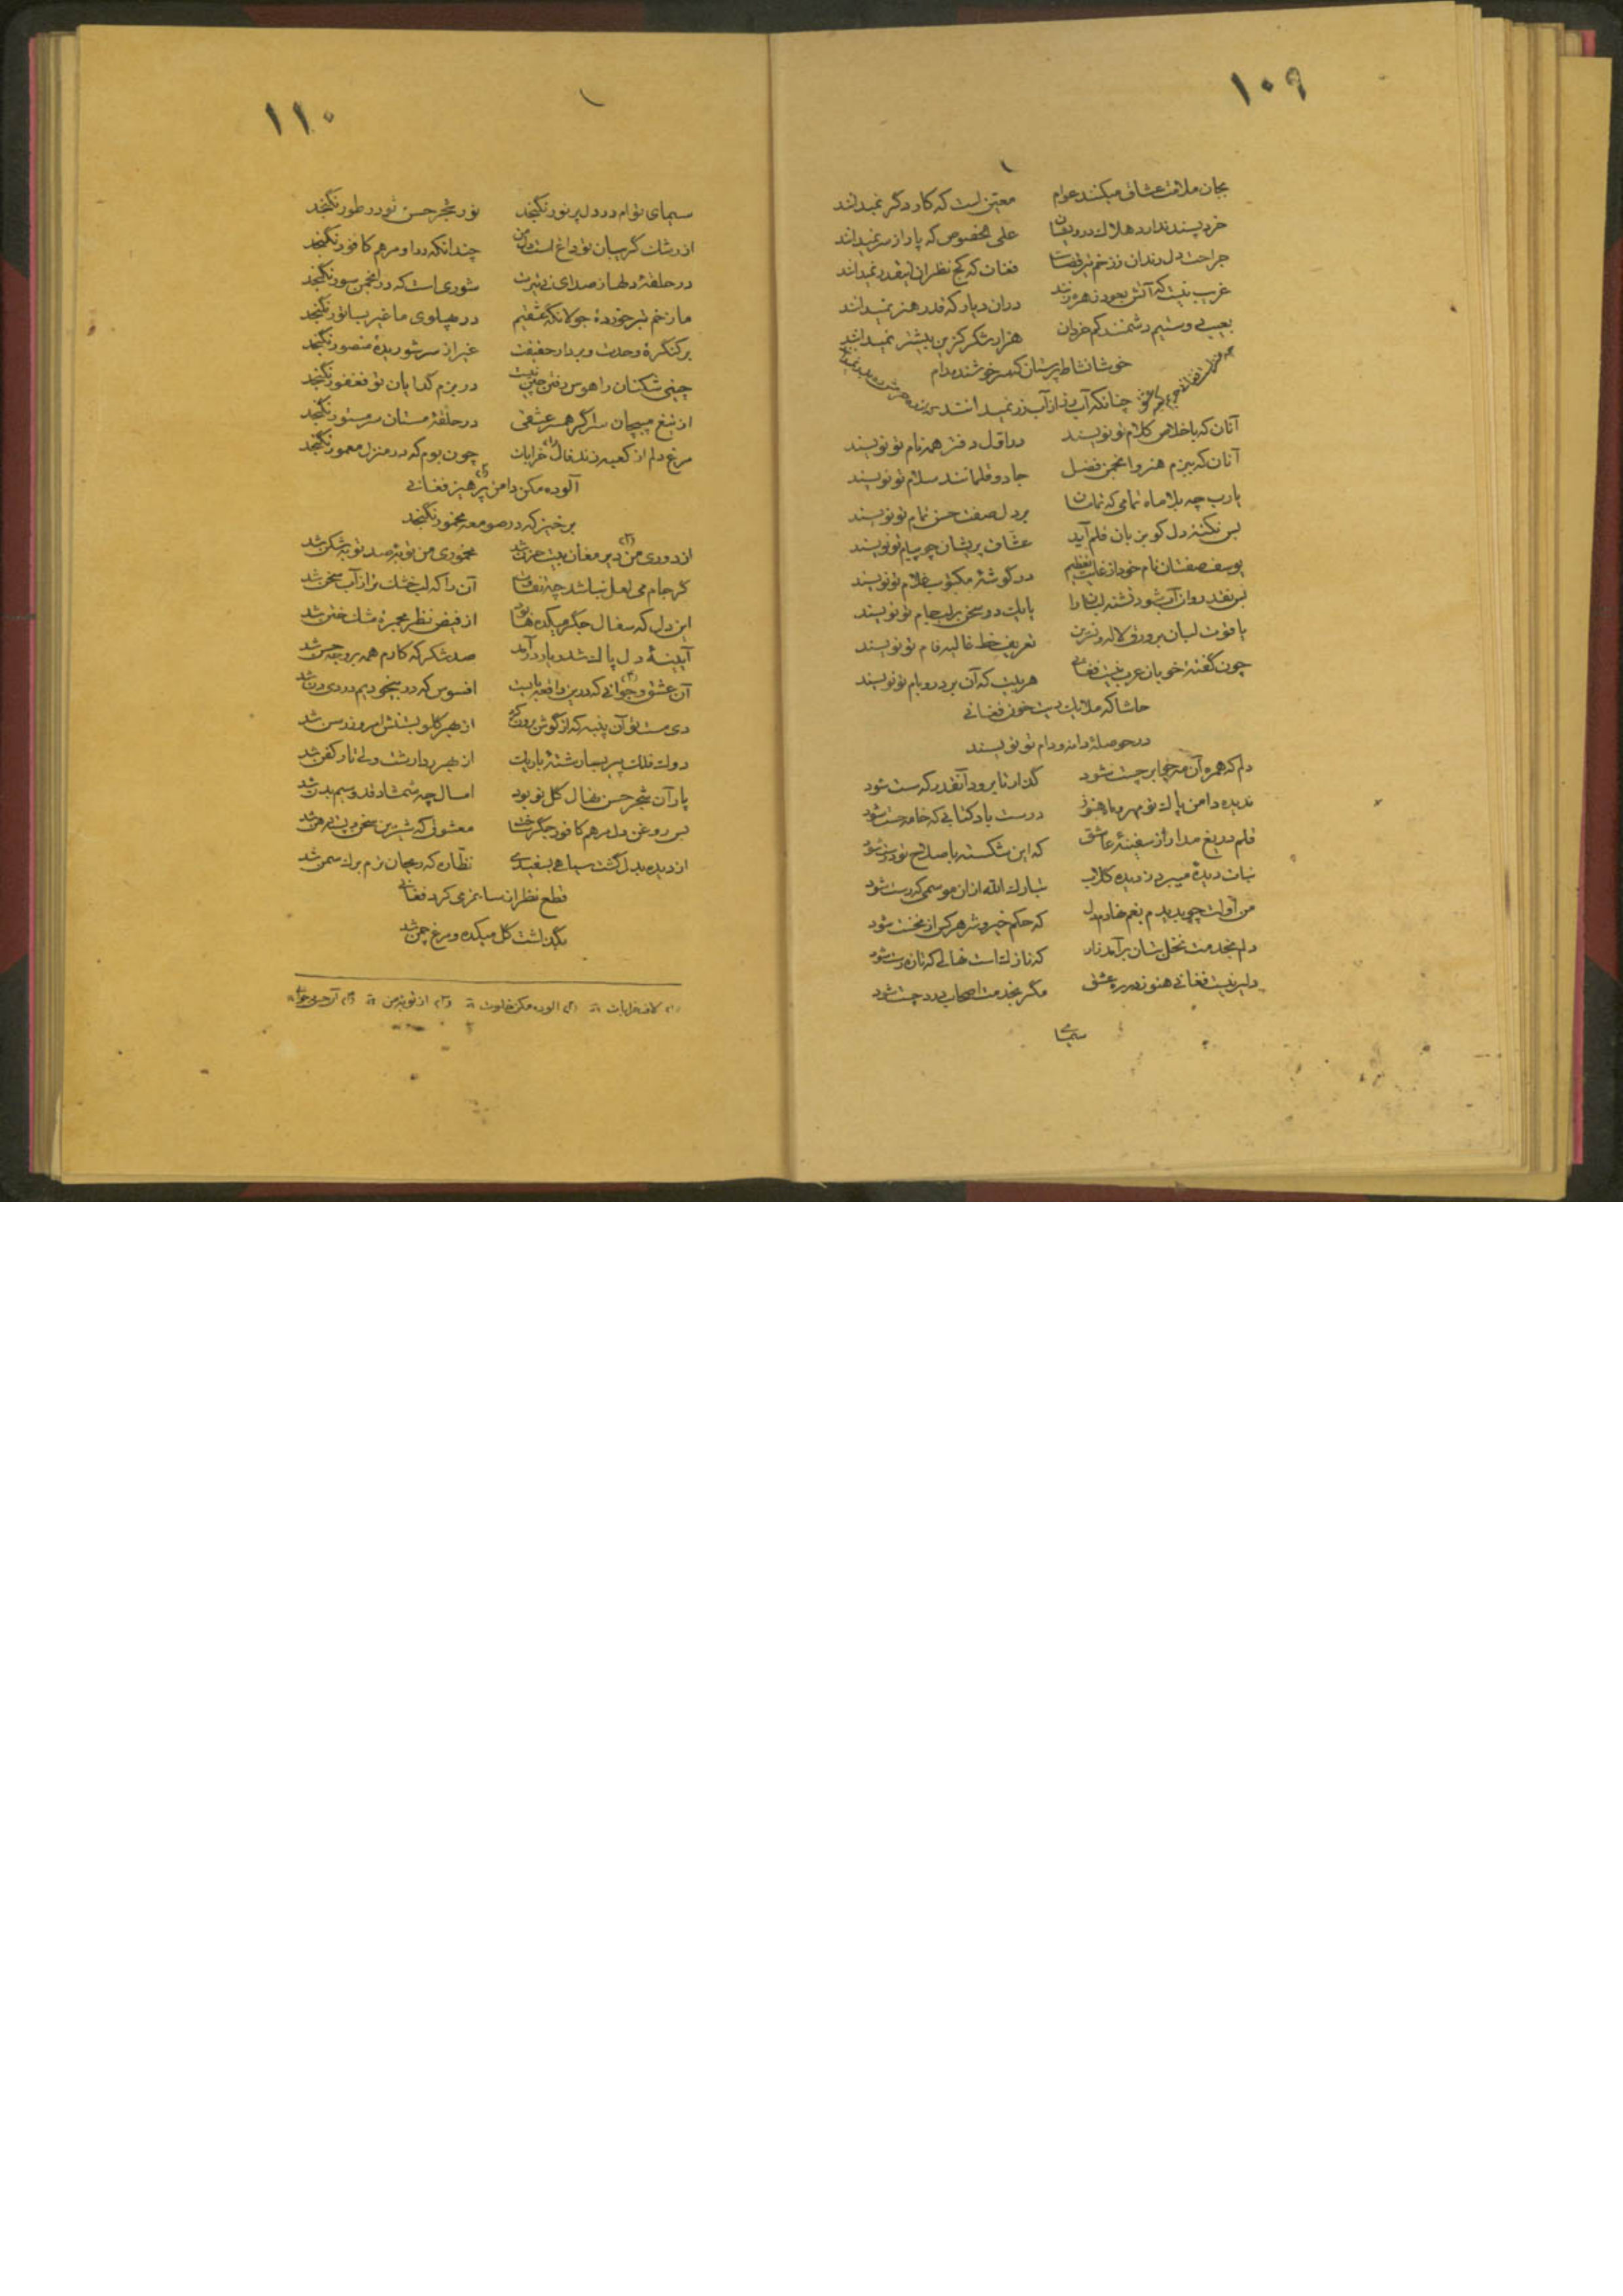 ۱۰۹
بجان ملامت عشاق میکنند عوام معین است که کار دگر نمیدانند
خرد پسند ندارد هلاک درویشان علی الخصوص که پا از سر نمیدانند
جراحت دل رندان ز زخم تیر قضاست فغان که کج نظران اینقدر نمیدانند
غریب نیست که آتش بعود زهره زنند در آن دیار که قدر هنر نمیدانند
بعیب بی دشمنند کم خردان هزار شکر کزین بیشتر نمیدانند
خوشا نشاط پرستان که سرخوشند مدام
چنانکه آب رز از آب زر نمیدانند
آنان که باخلاص کلام تو نویسند در اول دفتر همه نام تو نویسند
آنان که ببزم هنر و انجمن فضل جادو قلمانند سلام تو نویسند
یارب چه بلا ماه تمامی که تمامت بر دل صفت حسن تمام تو نویسند
بس نکته دل کو بزبان قلم آید عشاق پریشان چو پیام تو نویسند
یوسف صفتان نام خود از غایت تعظیم در گوشه مکتوب غلام تو نویسند
بس نقد روان آب شود تشنه لبان را یا یک دو سخن بر لب جام تو نویسند
یاقوت لبان بر ورق لاله و نسرین تعریف خط غالیه فام تو نویسند
چون گفته خوبان عرب نیست فغانی هر بیت که آن بر در و بام تو نویسند
حاشا که ملایک دیت خون فغانی
در حوصله دانه و دام تو نویسند
دلم که همره آن مه چابر چست شود گذار تا برود آنقدر که سست شود
ندیده دامن پاک تو مهر و ماه هنوز درست باد کتابی که خامه جست شود
قلم دریغ مدار از سفینه عاشق که این شکسته باصلاح تو درست شود
نبات دیده میبرد ز دیده گلاب تبارک الله از آن موسمی که رست شود
من اولت چو بدیدم بغم نهادم دل که حکم خیر و شر هر کس از نخست شود
دلم بخدمت نخل بتان برآمد زار که نازک است نهالی که تازه رست شود
دلیر نیست فغانی هنوز در ره عشق مگر بخدمت اصحاب درد چست شود
سیمای
۱۱۰
سیمای تو ام در دل پر نور نگنجد نور شجر حسن تو در طور نگنجد
از رشک گریبان تو داغ است دل من چندانکه در او مرهم کافور نگنجد
در حلقه دلها ز صدای نی تیرت شوری است که در انجمن سور نگنجد
ما زخم تبر خورده جولانگه عشقیم در پهلوی ما غیر ساتور نگنجد
بر کنگره وحدت و بر دار حقیقت غیر از سر شوریده منصور نگنجد
چینی شکنان را هوس رفتن چین نیست در بزم گدایان تو فغفور نگنجد
از تیغ مپیچان سر اگر همسر عشقی در حلقه مستان سر مستور نگنجد
مرغ دلم از کعبه زند فال خرابات چون بوم که در منزل معمور نگنجد
آلوده مکن دامن پرهیز فغانی
برخیز که در صومعه مخمور نگنجد
از دوری من دیر مغان بیت حزن شد مخموری من توبه صد توبه شکن شد
گر جام می لعل نباشد چه تفاوت آن را که لب خشک تر از آب سخن شد
این دل که سفال جگر میکده ها بود از فیض نظر مجمره مشک ختن شد
آیینه دل پاک شد و یار درآمد صد شکر که کارم همه بر وجه حسن شد
آن عشق و جوانی که درین واقعه بایست افسوس که در بیخودیم دردی دن شد
دی مست تو آن پنبه که از گوش برون کرد از بهر گلو بستنش امروز رسن شد
دولت فلک پیر بیما رشته باریک از بهر ردا رشت ولی تار کفن شد
پار آن شجر حسن نهال گل نو بود امسال چه شمشاد قد و سیم بدن شد
بس روغن دل مرهم کافور جگر خست معشوق که شیرین سخن و پسته دهن شد
از دیده بدل گشت سیاهی بسفیدی نظاره که ریحان بزم برگ سمن شد
قطع نظر از سایه نمیکرد فغانی
بگذشت گل میکده و مرغ چمن شد
(۱) لاف خرابات (۲) آلوده مکن خلوت (۳) از توبه من